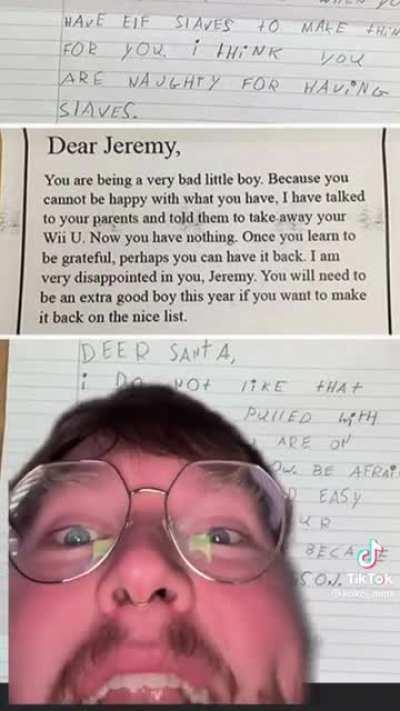 HAVE ElF SlAVES tO MAKE tHiN
FOR YOU. i tHiNK YOU
ARE NAUGHTY FOR HAViNG
SlAVES.
Dear Jeremy,
You are being a very bad little boy. Because you
cannot be happy with what you have, I have talked
to your parents and told them to take away your
Wii U. Now you have nothing. Once you learn to
be grateful, perhaps you can have it back. I am
very disappointed in you, Jeremy. You will need to
be an extra good boy this year if you want to make
it back on the nice list.
DEER SANtA,
i DO NOt liKE tHAt
PUllED WitH
ARE ON
BE AFRAi
EASY
UR
BECA
TikTok